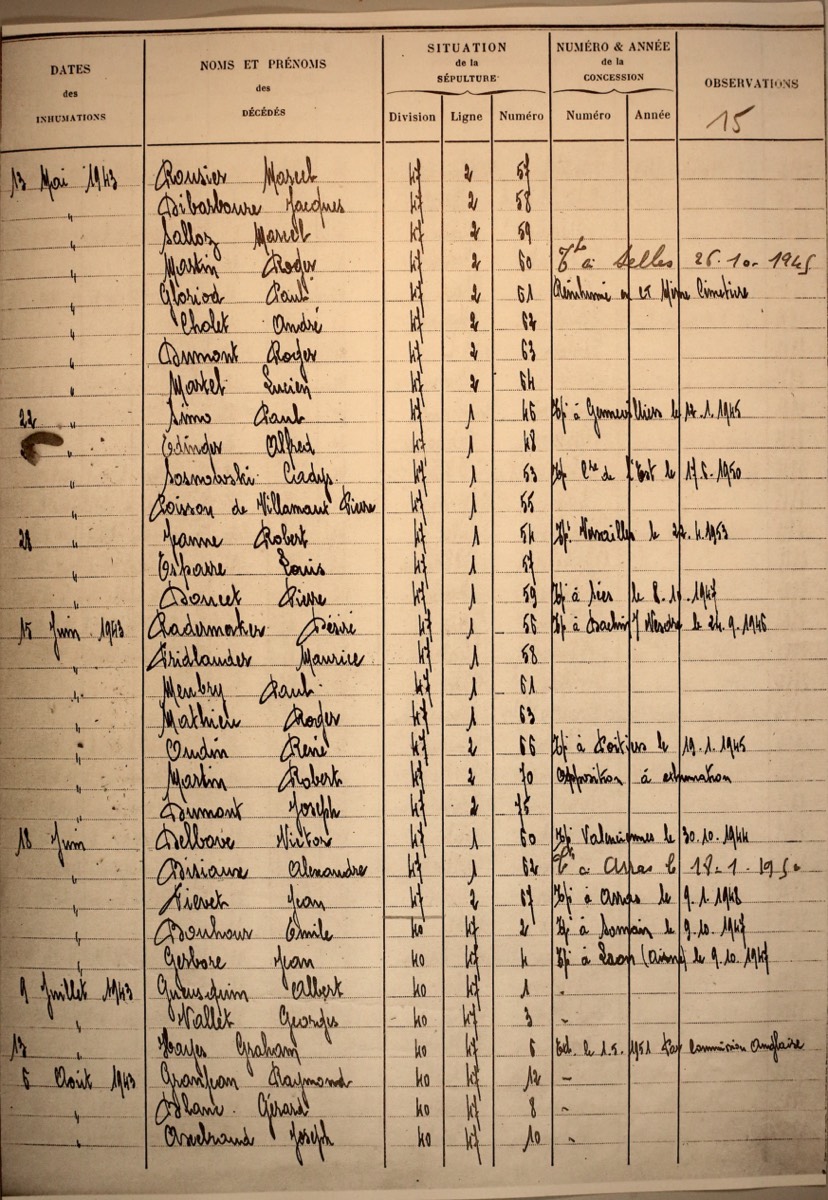 DATES des INHUMATIONS
NOMS ET PRÉNOMS des DÉCÉDÉS
SITUATION de la SÉPULTURE
NUMÉRO & ANNÉE de la CONCESSION
OBSERVATIONS
Division Ligne Numéro Numéro Année
15
13 Mai 1943 Rousier Marcel 47 2 57
" Dibasboure Jacques 47 2 58
" Salloz Marcel 47 2 59
" Martin Roger 47 2 60 à Selles 26.10.1945
" Gloriod Paul 47 2 61 Réinhumé en ce Même Cimetière
" Cholet André 47 2 62
" Dumont Roger 47 2 63
" Martel Lucien 47 2 64
22 " Simo Paul 47 1 46 Tp à Gennevilliers le 1.1945
" Edinger Alfred 47 1 48
" Sosnowski Ladys 47 1 53 Tp Cre de l'Est le 17.5.1950
" Poisson de Villamaux Pierre 47 1 55
28 " Jeanne Robert 47 1 54 Tp Versailles le 22.4.1953
" Esparre Louis 47 1 57
" Doucet Pierre 47 1 59 Tp à Sées le 8.10.1947
15 Juin 1943 Radermarker Désiré 47 1 56 Tp à le 24.9.1946
" Fridlander Maurice 47 1 58
" Menbry Paul 47 1 61
" Mathieu Roger 47 1 63
" Oudin René 47 2 66 Tp à Poitiers le 19.1.1945
" Martin Robert 47 2 70 Opposition à exhumation
" Dumont Joseph 47 2 75
18 Juin Delbove Victor 47 1 60 Tp Valenciennes le 30.10.1944
" Disiaux Alexandre 47 1 62 à Arras le 18.1.1950
" Fievet Jean 47 2 67 Tp à Arras le 9.1.1948
" Bonhour Emile 40 47 2 Tp à Somain le 9.10.1947
" Gerbore Jean 40 47 4 Tp à Laon (Aisne) le 9.10.1947
9 Juillet 1943 Gueusquin Albert 40 47 1 -
" Vallet Georges 40 47 3 -
13 " Hayes Graham 40 47 6 Exh. le 1.5.1951 Par Commission Anglaise
6 Août 1943 Grampan Raymond 40 47 12 -
" Blanc Gérard 40 47 8 -
" Joseph 40 47 10 -